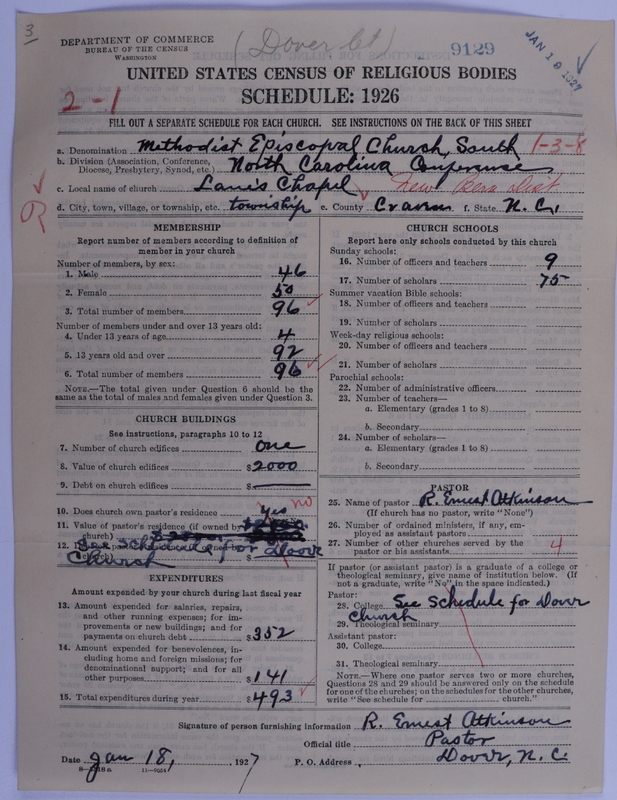 3
DEPARTMENT OF COMMERCE
BUREAU OF THE CENSUS
WASHINGTON
(Dover Ct)
9129
JAN 19 1927
UNITED STATES CENSUS OF RELIGIOUS BODIES
2-1
SCHEDULE: 1926
FILL OUT A SEPARATE SCHEDULE FOR EACH CHURCH. SEE INSTRUCTIONS ON THE BACK OF THIS SHEET
a. Denomination Methodist Episcopal Church, South 1-3-8
b. Division (Association, Conference, Diocese, Presbytery, Synod, etc.) North Carolina Conference,
c. Local name of church Lane's Chapel New Bern Dist
d. City, town, village, or township, etc. township e. County Craven f. State N. C.
R
MEMBERSHIP
Report number of members according to definition of
member in your church
Number of members, by sex:
1. Male 46
2. Female 50
3. Total number of members 96
Number of members under and over 13 years old:
4. Under 13 years of age 4
5. 13 years old and over 92
6. Total number of members 96
NOTE.—The total given under Question 6 should be
same as the total of males and females given under Question 3.
CHURCH BUILDINGS
See instructions, paragraphs 10 to 12
7. Number of church edifices one
8. Value of church edifices $2000
9. Debt on church edifices $ —
10. Does church own pastor's residence? yes no
11. Value of pastor's residence (if owned by
church) $
12. De
church) $
See Schedule for Dover
Church
EXPENDITURES
Amount expended by your church during last fiscal year
13. Amount expended for salaries, repairs,
and other running expenses; for im-
provements or new buildings; and for
payments on church debt $352
14. Amount expended for benevolences, in-
cluding home and foreign missions; for
denominational support; and for all
other purposes $141
15. Total expenditures during year $493
CHURCH SCHOOLS
Report here only schools conducted by this church
Sunday schools:
16. Number of officers and teachers 9
17. Number of scholars 75
Summer vacation Bible schools:
18. Number of officers and teachers
19. Number of scholars
Week-day religious schools:
20. Number of officers and teachers
21. Number of scholars
Parochial schools:
22. Number of administrative officers
23. Number of teachers—
a. Elementary (grades 1 to 8)
b. Secondary
24. Number of scholars—
a. Elementary (grades 1 to 8)
b. Secondary
PASTOR
25. Name of pastor R. Ernest Atkinson
(If church has no pastor, write "None")
26. Number of ordained ministers, if any, em-
ployed as assistant pastors
27. Number of other churches served by the
pastor or his assistants 4
If pastor (or assistant pastor) is a graduate of a college or
theological seminary, give name of institution below. (If
not a graduate, write "No" in the space indicated.)
Pastor:
28. College See Schedule for Dover
Church
29. Theological seminary
Assistant pastor:
30. College
31. Theological seminary
NOTE.—Where one pastor serves two or more churches,
Questions 28 and 29 should be answered only on the schedule
for one of the churches; on the schedules for the other churches,
write "See schedule for church."
Signature of person furnishing information R. Ernest Atkinson
Official title Pastor
Date Jan 18, 1927 P. O. Address Dover, N. C.